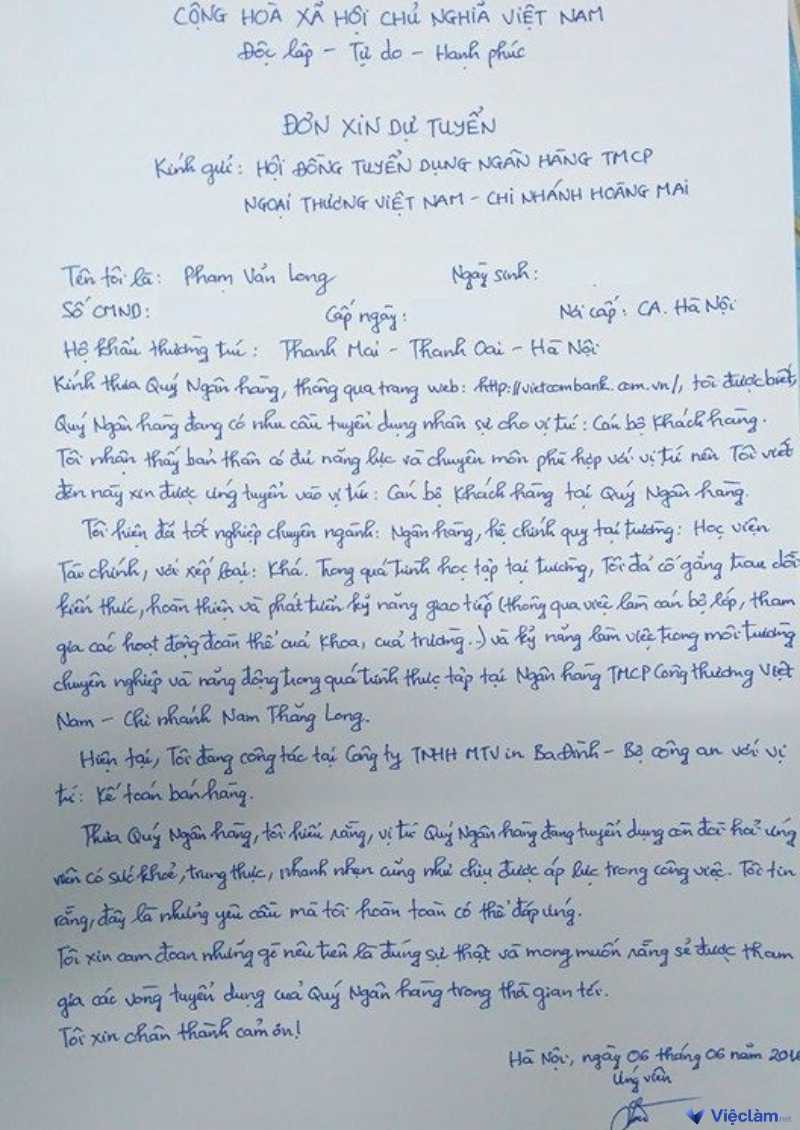 CỘNG HOÀ XÃ HỘI CHỦ NGHĨA VIỆT NAM
Độc lập - Tự do - Hạnh phúc
ĐƠN XIN DỰ TUYỂN
Kính gửi: HỘI ĐỒNG TUYỂN DỤNG NGÂN HÀNG TMCP
NGOẠI THƯƠNG VIỆT NAM - CHI NHÁNH HOÀNG MAI
Tên tôi là: Phạm Văn Long Ngày sinh:
Số CMND: Cấp ngày: Nơi cấp: CA. Hà Nội
Hộ khẩu thường trú: Thanh Mai - Thanh Oai - Hà Nội
Kính thưa Quý Ngân hàng, thông qua trang web: http://vietcombank.com.vn/, tôi được biết
Quý Ngân hàng đang có nhu cầu tuyển dụng nhân sự cho vị trí: Cán bộ Khách hàng.
Tôi nhận thấy bản thân có đủ năng lực và chuyên môn phù hợp với vị trí nên Tôi viết
đơn này xin được ứng tuyển vào vị trí: Cán bộ Khách hàng tại Quý Ngân hàng.
Tôi hiện đã tốt nghiệp chuyên ngành: Ngân hàng, hệ chính quy tại trường: Học viện
Tài chính, với xếp loại: Khá. Trong quá trình học tập tại trường, Tôi đã cố gắng trau dồi
kiến thức, hoàn thiện và phát triển kỹ năng giao tiếp (thông qua việc làm cán bộ lớp, tham
gia các hoạt động đoàn thể của Khoa, của trường..) và kỹ năng làm việc trong môi trường
chuyên nghiệp và năng động trong quá trình thực tập tại Ngân hàng TMCP Công thương Việt
Nam - Chi nhánh Nam Thăng Long.
Hiện tại, Tôi đang công tác tại Công ty TNHH MTV in Ba Đình - Bộ công an với vị
trí: Kế toán bán hàng.
Thưa Quý Ngân hàng, tôi hiểu rằng, vị trí Quý Ngân hàng đang tuyển dụng cần đòi hỏi ứng
viên có sức khoẻ, trung thực, nhanh nhẹn cũng như chịu được áp lực trong công việc. Tôi tin
rằng, đây là những yêu cầu mà tôi hoàn toàn có thể đáp ứng.
Tôi xin cam đoan những gì nêu trên là đúng sự thật và mong muốn rằng sẽ được tham
gia các vòng tuyển dụng của Quý Ngân hàng trong thời gian tới.
Tôi xin chân thành cảm ơn!
Hà Nội, ngày 06 tháng 06 năm
Ứng viên
Việclàm.net